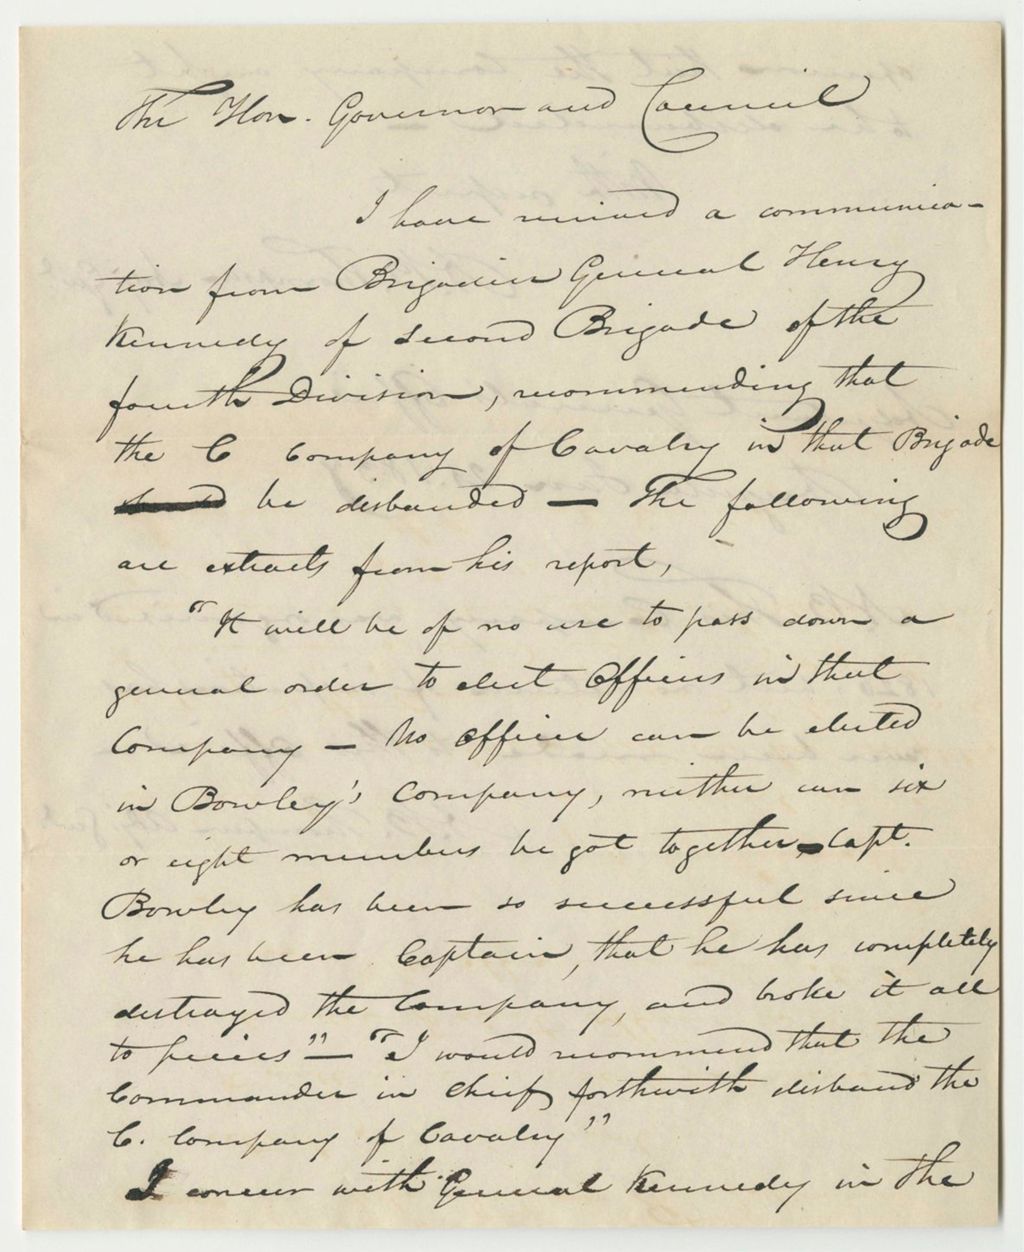 The Hon. Governor and Council
I have received a communica-
tion from Brigadier General Henry
Kennedy of second Brigade of the
fourth Division, recommending that
the C Company of Cavalry in that Brigade
be disbanded — The following
are extracts from his report,
"It will be of no use to pass down a
general order to elect Officers in that
Company — No Officer can be elected
in Bowley's Company, neither can six
or eight members be got together, Capt.
Bowley has been so successful since
he has been Captain, that he has completely
destroyed the Company, and broke it all
to pieces" — "I would recommend that the
Commander in Chief forthwith disband the
C. Company of Cavalry"
I concur with General Kennedy in the